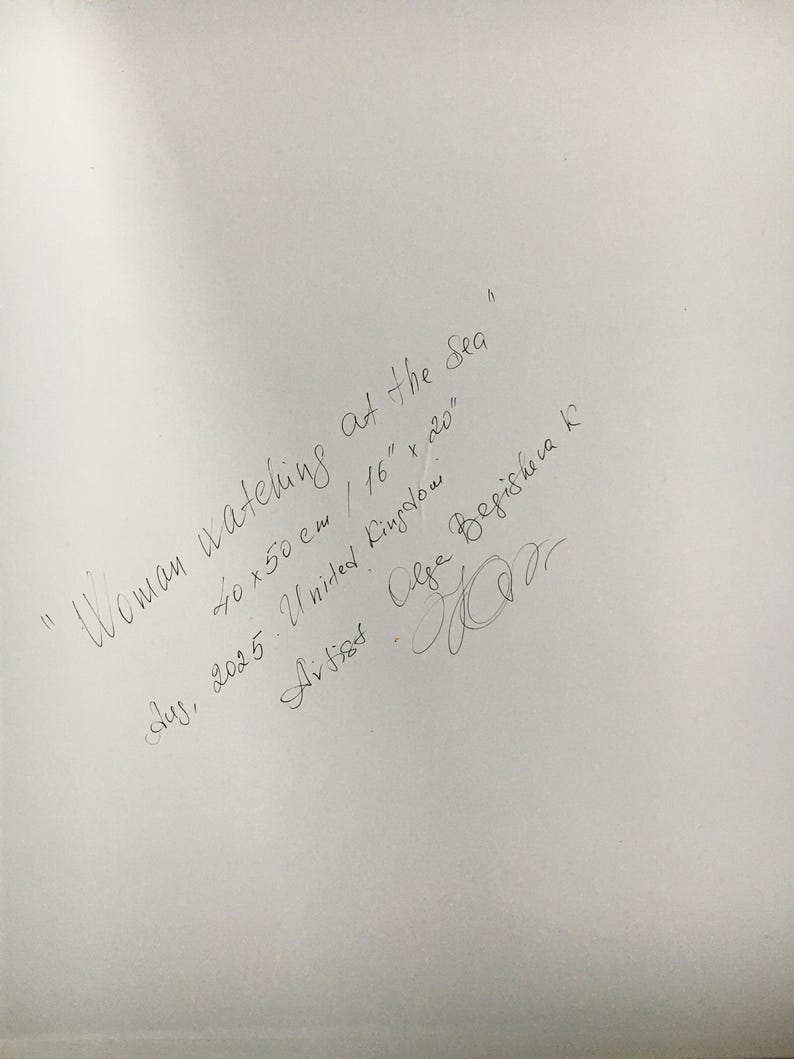 "Woman watching at the sea"
40 x 50 cm / 16" x 20"
Aug, 2025. United Kingdom
Artist Olga Begisheva K